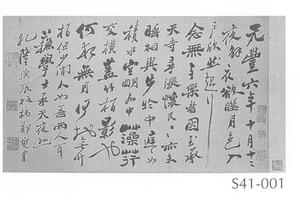 元豐六年十月十二
夜解衣欲睡月色入
戶欣然起行
念無與樂者因至承
天寺尋張懷民民亦未
相與步於中庭
積水空明中藻荇
交橫蓋竹柏影也
何夜無月何處無竹
柏但少閒人如吾兩人耳
蘇學士承天夜遊
S41-001